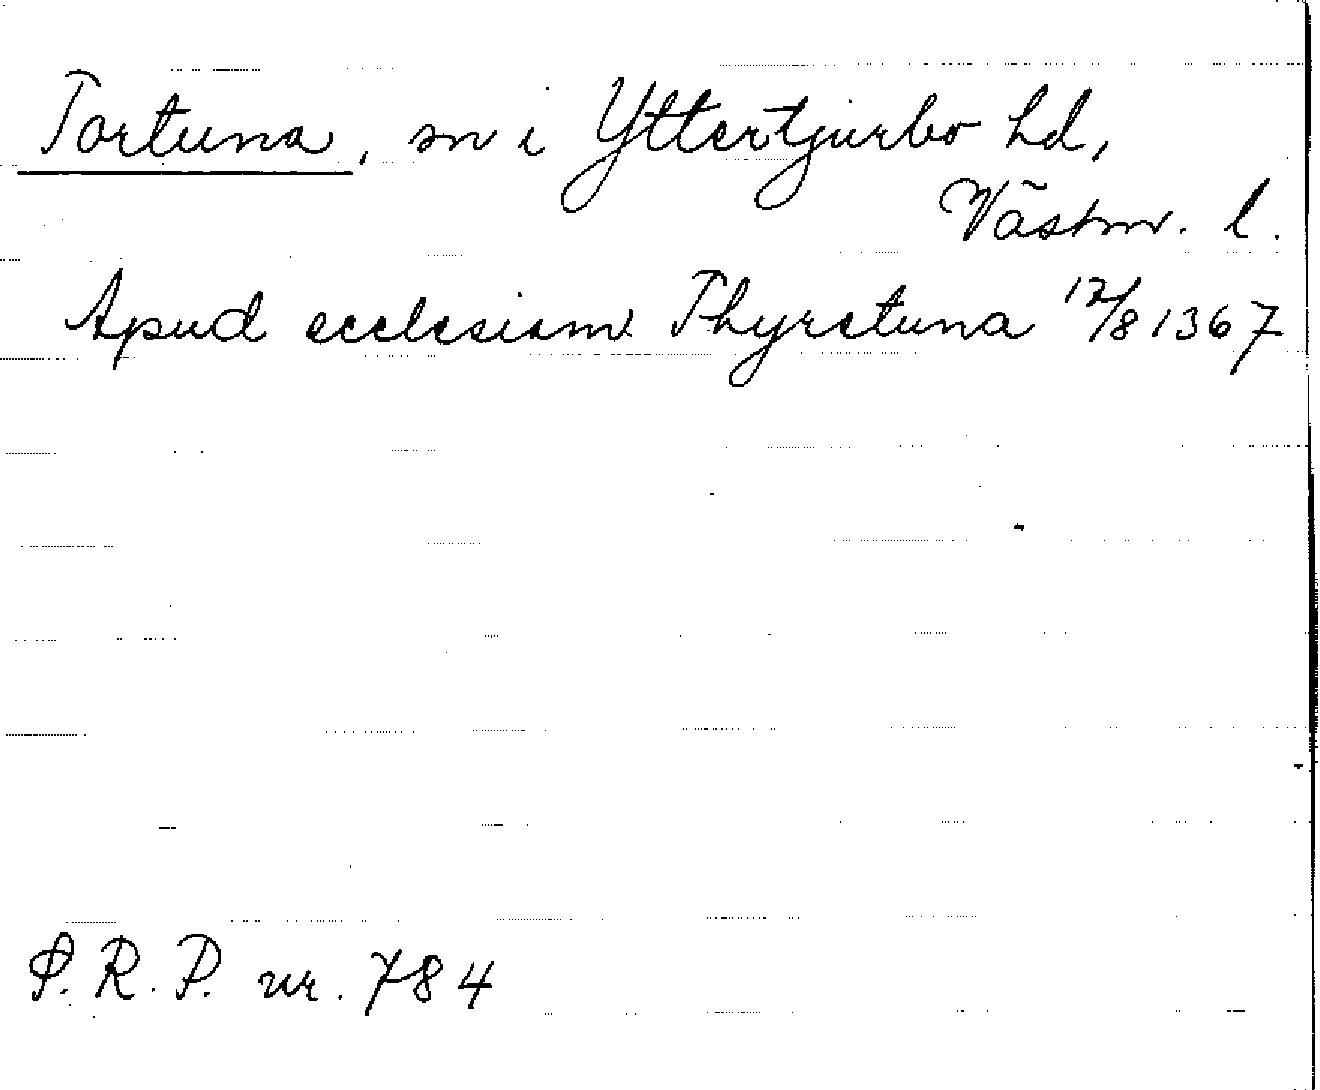 Tortuna, sn i Yttertjurbo hd,
Västm. l.
Apud ecclesiam Thyrctuna 12/8 1367
S.R.P. nr. 784